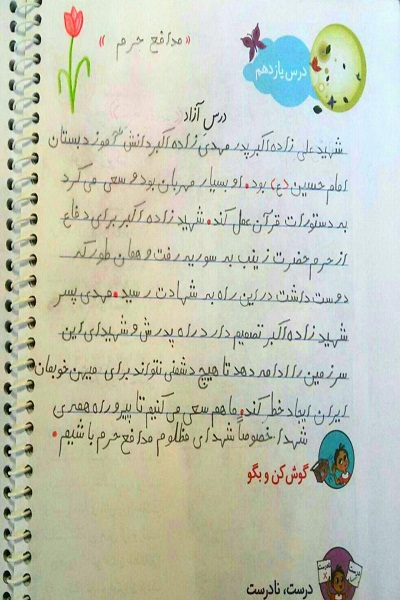 درس یازدهم
« مدافع حرم »
درس آزاد
شهید علی زاده اکبر پدر مهدی زاده اکبر دانش آموز دبستان
امام حسین (ع) بود. او بسیار مهربان بود و سعی می کرد
به دستورات قرآن عمل کند. شهید زاده اکبر برای دفاع
از حرم حضرت زینب به سوریه رفت و همان طور که
دوست داشت در این راه به شهادت رسید. مهدی پسر
شهید زاده اکبر تصمیم دارد راه پدرش و شهیدای این
سرزمین را ادامه دهد تا هیچ دشمنی نتواند برای میهن خوبمان
ایران ایجاد خطر کند. ما هم سعی می کنیم تا پیرو راه همه ی
شهدا خصوصاً شهدای مظلوم مدافع حرم باشیم.
گوش کن و بگو
درست، نادرست